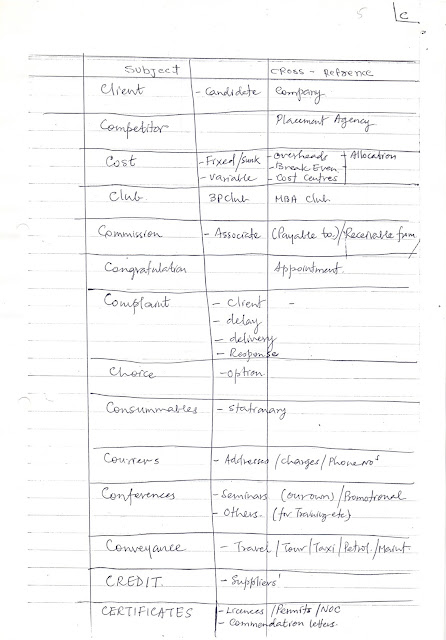 5 C
Subject Cross - Refrence
Client - Candidate Company
Competitor Placement Agency
Cost - Fixed/Sunk - Overheads + Allocation
- Variable - Break Even
- Cost Centres
Club 3P Club MBA Club
Commission - Associate (Payable to)/Receivable from
Congratulation Appointment
Complaint - Client -
- delay
- delivery
- Response
Choice - Option
Consummables - Stationary
Couriers - Addresses/Charges/Phone Nos
Conferences - Seminars (Our own)/Promotional
- Others. (for Training-etc)
Conveyance - Travel/Tour/Taxi/Petrol/Maint
CREDIT - Suppliers'
CERTIFICATES - Licences/Permits/NOC
- Commendation letters.